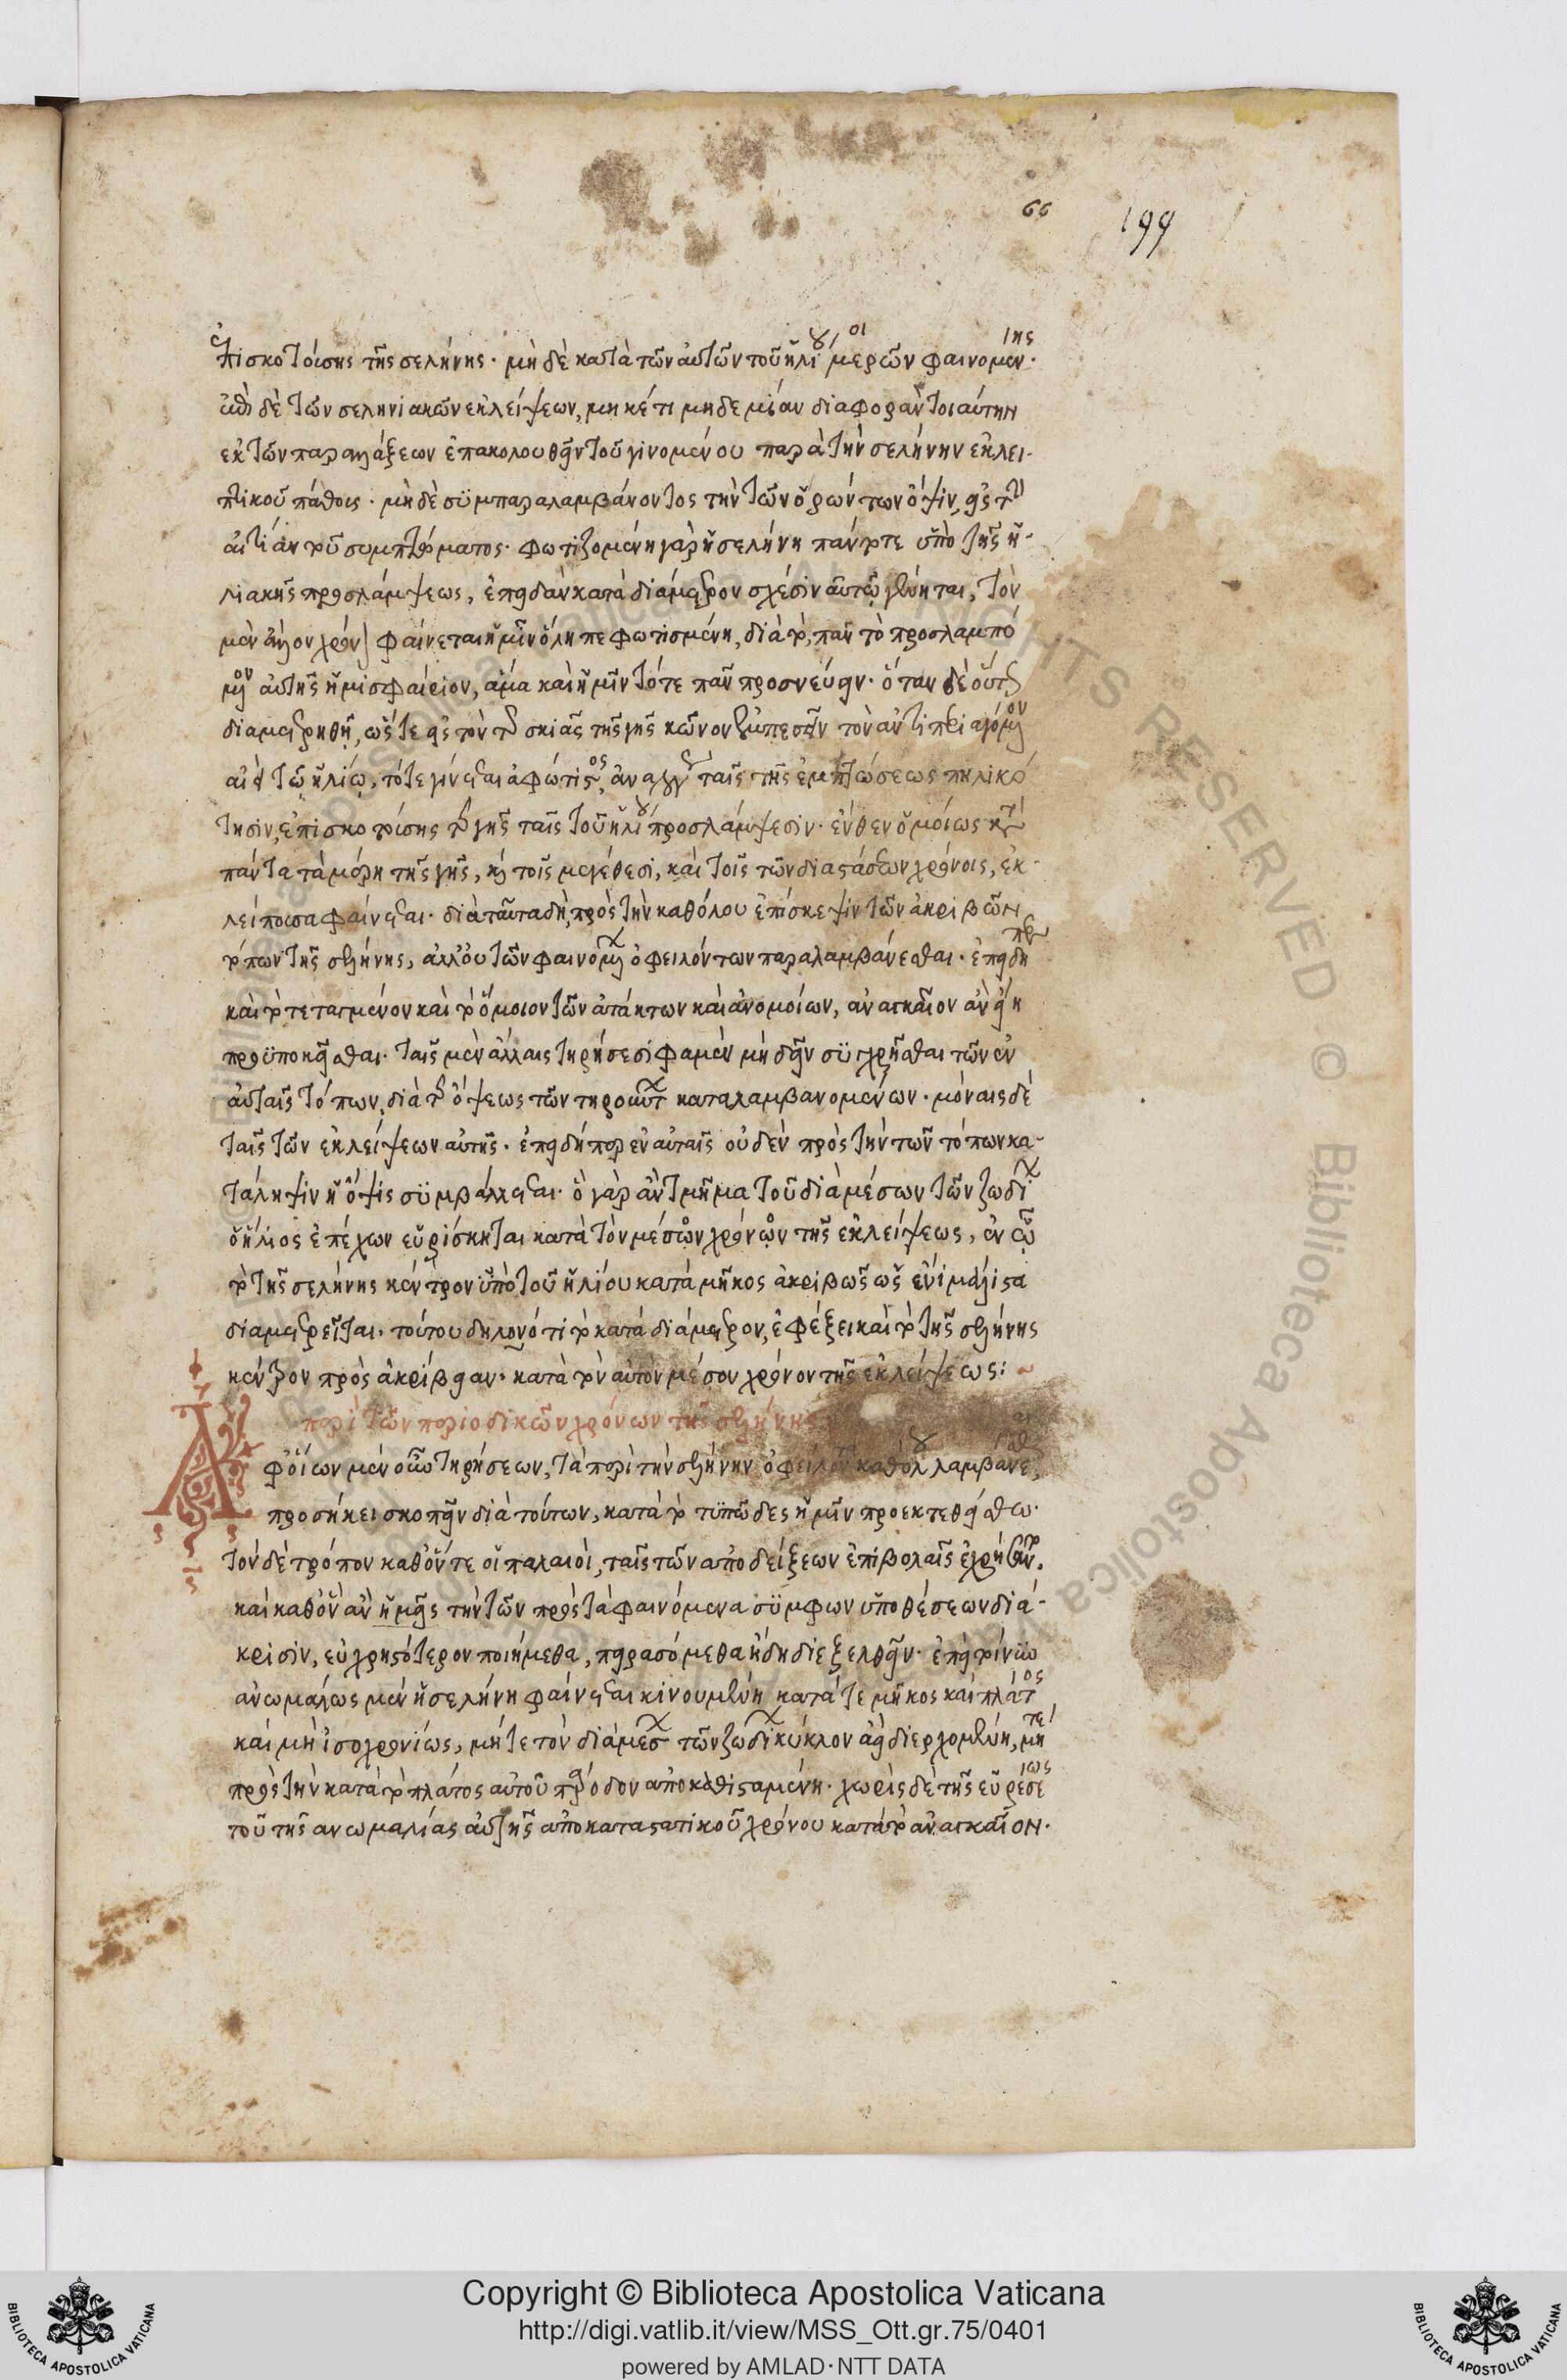 66
199
ἐπισκοτούσης τῆς σελήνης· μὴ δὲ κατὰ τῶν αὐτῶν τοῦ ἡλίου μερῶν φαινομένης·
ἐπὶ δὲ τῶν σεληνιακῶν ἐκλείψεων, μηκέτι μηδεμίαν διαφορὰν τοιαύτην
ἐκ τῶν παραλλάξεων ἐπακολουθεῖν τοῦ γινομένου παρὰ τὴν σελήνην ἐκλει-
πτικοῦ πάθους· μὴ δὲ συμπαραλαμβάνοντος τὴν τῶν ὁρώντων ὄψιν, εἰς τὴν
αἰτίαν τοῦ συμπτώματος· φωτιζομένη γὰρ ἡ σελήνη πάντοτε ὑπὸ τῆς ἡ-
λιακῆς προσλάμψεως, ἐπειδὰν κατὰ διάμετρον σχέσιν αὐτῷ γένηται, τὸν
μὲν ἄλλον χρόνον φαίνεται ἡμῖν ὅλη πεφωτισμένη, διὰ τὸ, πᾶν τὸ προσλαμπό
μενον αὐτῆς ἡμισφαίριον, ἅμα καὶ ἡμῖν τότε πᾶν προσνεύειν· ὅταν δὲ οὕτως
διαμετρηθῇ, ὥστε εἰς τὸν τῆς σκιᾶς τῆς γῆς κῶνον ἐμπεσεῖν τὸν ἀντιπεριαγόμενον
αἰεὶ τῷ ἡλίῳ, τότε γίνεται ἀφώτιστος, ἀναλόγως ταῖς τῆς ἐμπτώσεως πηλικό
τησιν, ἐπισκοτούσης τῆς γῆς ταῖς τοῦ ἡλίου προσλάμψεσιν· ἔνθεν ὁμοίως κατὰ
πάντα τὰ μέρη τῆς γῆς, καὶ τοῖς μεγέθεσι, καὶ τοῖς τῶν διαστάσεων χρόνοις, ἐκ-
λείπουσα φαίνεται· διὰ ταῦτα δὴ, πρὸς τὴν καθόλου ἐπίσκεψιν τῶν ἀκριβῶν
τόπων τῆς σελήνης, ἀλλ' οὐ τῶν φαινομένων ὀφειλόντων παραλαμβάνεσθαι· ἐπειδήπερ
καὶ τὸ τεταγμένον καὶ τὸ ὅμοιον τῶν ἀτάκτων καὶ ἀνομοίων, ἀναγκαῖον ἂν εἴη
προϋποκεῖσθαι· ταῖς μὲν ἄλλαις τηρήσεσί φαμὲν μὴ δεῖν συγχρῆσθαι τῶν ἐν
αὐταῖς τόπων, διὰ τῆς ὄψεως τῶν τηρούντων καταλαμβανομένων· μόναις δὲ
ταῖς τῶν ἐκλείψεων αὐτῆς· ἐπειδήπερ ἐν αὐταῖς οὐδὲν πρὸς τὴν τῶν τόπων κα-
τάληψιν ἡ ὄψις συμβάλλεται· ὃ γὰρ ἂν τμῆμα τοῦ διὰ μέσων τῶν ζωδίων
ὁ ἥλιος ἐπέχων εὑρίσκηται κατὰ τὸν μέσον χρόνον τῆς ἐκλείψεως, ἐν ᾧ
τὸ τῆς σελήνης κέντρον ὑπὸ τοῦ ἡλίου κατὰ μῆκος ἀκριβῶς ὡς ἔνι μάλιστα
διαμετρεῖται· τούτου δηλονότι τὸ κατὰ διάμετρον, ἐφέξει καὶ τὸ τῆς σελήνης
κέντρον πρὸς ἀκρίβειαν· κατὰ τὸν αὐτὸν μέσον χρόνον τῆς ἐκλείψεως:
περὶ τῶν περιοδικῶν χρόνων τῆς σελήνης
Ἀφ' οἵων μὲν οὖν τηρήσεων, τὰ περὶ τὴν σελήνην ὀφείλειν καθόλου λαμβάνεσθαι,
προσήκει σκοπεῖν διὰ τούτων, κατὰ τὸ τυπῶδες ἡμῖν προεκτεθείσθω·
τὸν δὲ τρόπον καθ' ὅν τε οἱ παλαιοὶ, ταῖς τῶν ἀποδείξεων ἐπιβολαῖς ἐχρήσαντο.
καὶ καθ' ὃν ἂν ἡμεῖς τὴν τῶν πρὸς τὰ φαινόμενα συμφώνων ὑποθέσεων διά-
κρισιν, εὐχρηστότερον ποιήμεθα, πειρασόμεθα ἤδη διεξελθεῖν· ἐπεὶ τοίνυν
ἀνωμάλως μὲν ἡ σελήνη φαίνεται κινουμένη κατά τε μῆκος καὶ πλάτος
καὶ μὴ ἰσοχρονίως, μήτε τὸν διὰ μέσων τῶν ζωδίων κύκλον ἀεὶ διερχομένη, μήτε
πρὸς τὴν κατὰ τὸ πλάτος αὐτοῦ πάροδον ἀποκαθισταμένη· χωρὶς δὲ τῆς εὑρέσεως
τοῦ τῆς ἀνωμαλίας αὐτῆς ἀποκαταστατικοῦ χρόνου κατὰ τὸ ἀναγκαῖον·
Copyright © Biblioteca Apostolica Vaticana
http://digi.vatlib.it/view/MSS_Ott.gr.75/0401
powered by AMLAD·NTT DATA